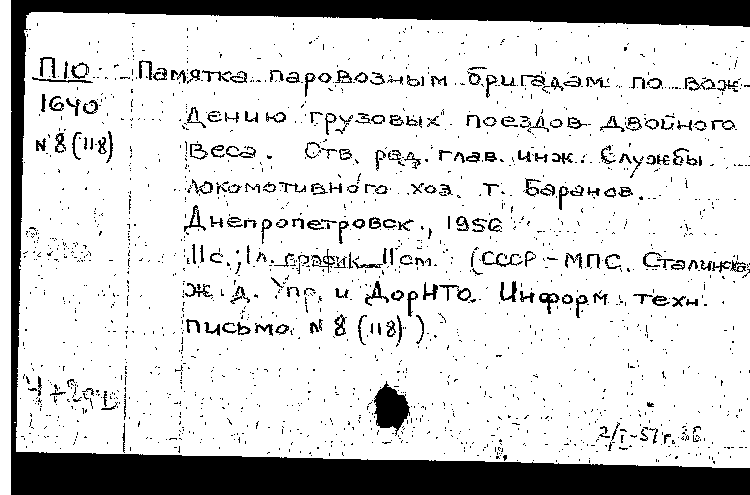 П10 Памятка паровозным бригадам по вож-
1640 дению грузовых поездов двойного
N 8 (118) веса. Отв. ред. глав. инж. Службы
локомотивного хоз. т. Баранов.
Днепропетровск., 1956
11с.; 1л. график 11см. (СССР - МПС. Сталинская
ж. д. Упр. и ДорНТО. Информ. техн.
письмо N 8 (118) ).
2/I-57г.